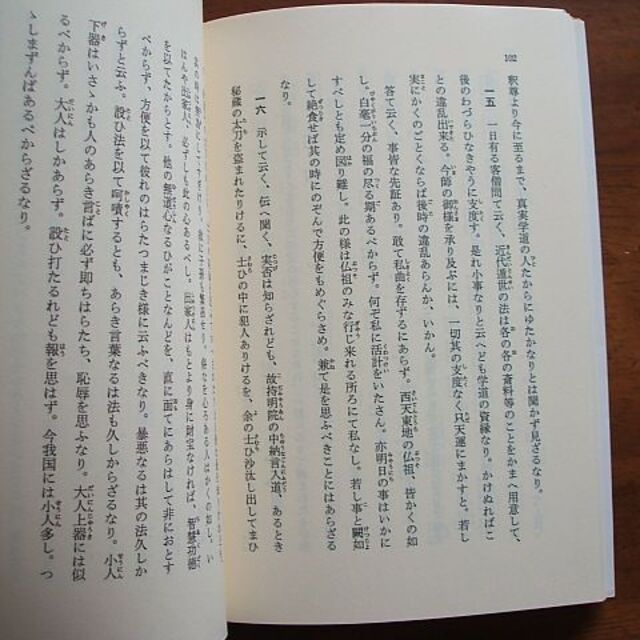 102
釈尊より今に至るまで、真実学道の人たからにゆたかなりとは聞かず見ざるなり。
一五 一日有る客僧問て云く、近代遁世の法は各の各の斎料等のことをかまへ用意して、
後のわづらひなきやうに支度す。是れ小事なりと云へども学道の資縁なり。かけぬればこ
との違乱出来る。今師の御様を承り及ぶには、一切其の支度なく只天運にまかすと。若し
実にかくのごとくならば後時の違乱あらんか、いかん。
答て云く、事皆な先証あり。敢て私曲を存ずるにあらず。西天東地の仏祖、皆かくの如
し。白毫一分の福の尽る期あるべからず。何ぞ私に活計をいたさん。亦明日の事はいかに
すべしとも定め図り難し。此の様は仏祖のみな行じ来れる所ろにて私なし。若し事と闕如
して絶食せば其の時にのぞんで方便をもめぐらさめ。兼て是を思ふべきことにはあらざる
なり。
一六 示して云く、伝へ聞く、実否は知らざれども、故持明院の中納言入道、あるとき
秘蔵の太刀を盗まれたりけるに、士ひの中に犯人ありけるを、余の士ひ沙汰し出してまひ
はんや出家人、此の心あるべし。出家人はもとより身に財宝なければ、智慧功徳
を以てたからとす。他の無道心なるひがことなんどを、直に面てにあらはして非におとす
べからず、方便を以て彼れのはらたつまじき様に云ふべきなり。暴悪なるは其の法久しか
らずと云ふ。設ひ法を以て呵嘖するとも、あらき言葉なるは法も久しからざるなり。小人
下器はいさゝかも人のあらき言ばに必ず即ちはらたち、恥辱を思ふなり。大人上器には似
るべからず。大人はしかあらず。設ひ打たるれども報を思はず。今我国には小人多し。つ
ゝしまずんばあるべからざるなり。